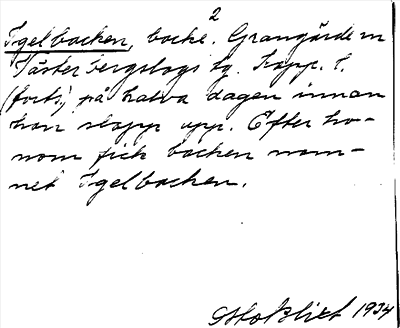 2
Igelbacken, backe. Grangärde sn
Västerbergslags tg. Kopp. l.
(forts.) på halva dagen innan
han slapp upp. Efter ho-
nom fick backen nam-
net Igelbacken.
Otto Blixt 1934